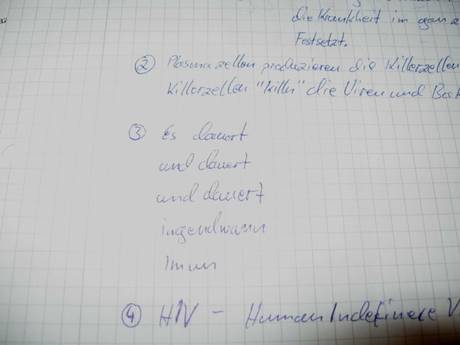 die Krankheit im ganz
Festsetzt.
② Plasmazellen produzieren die Killerzellen
Killerzellen "killn" die Viren und Bak
③ Es dauert
und dauert
und dauert
irgendwann
Imun
④ HIV – Human Indefinere V